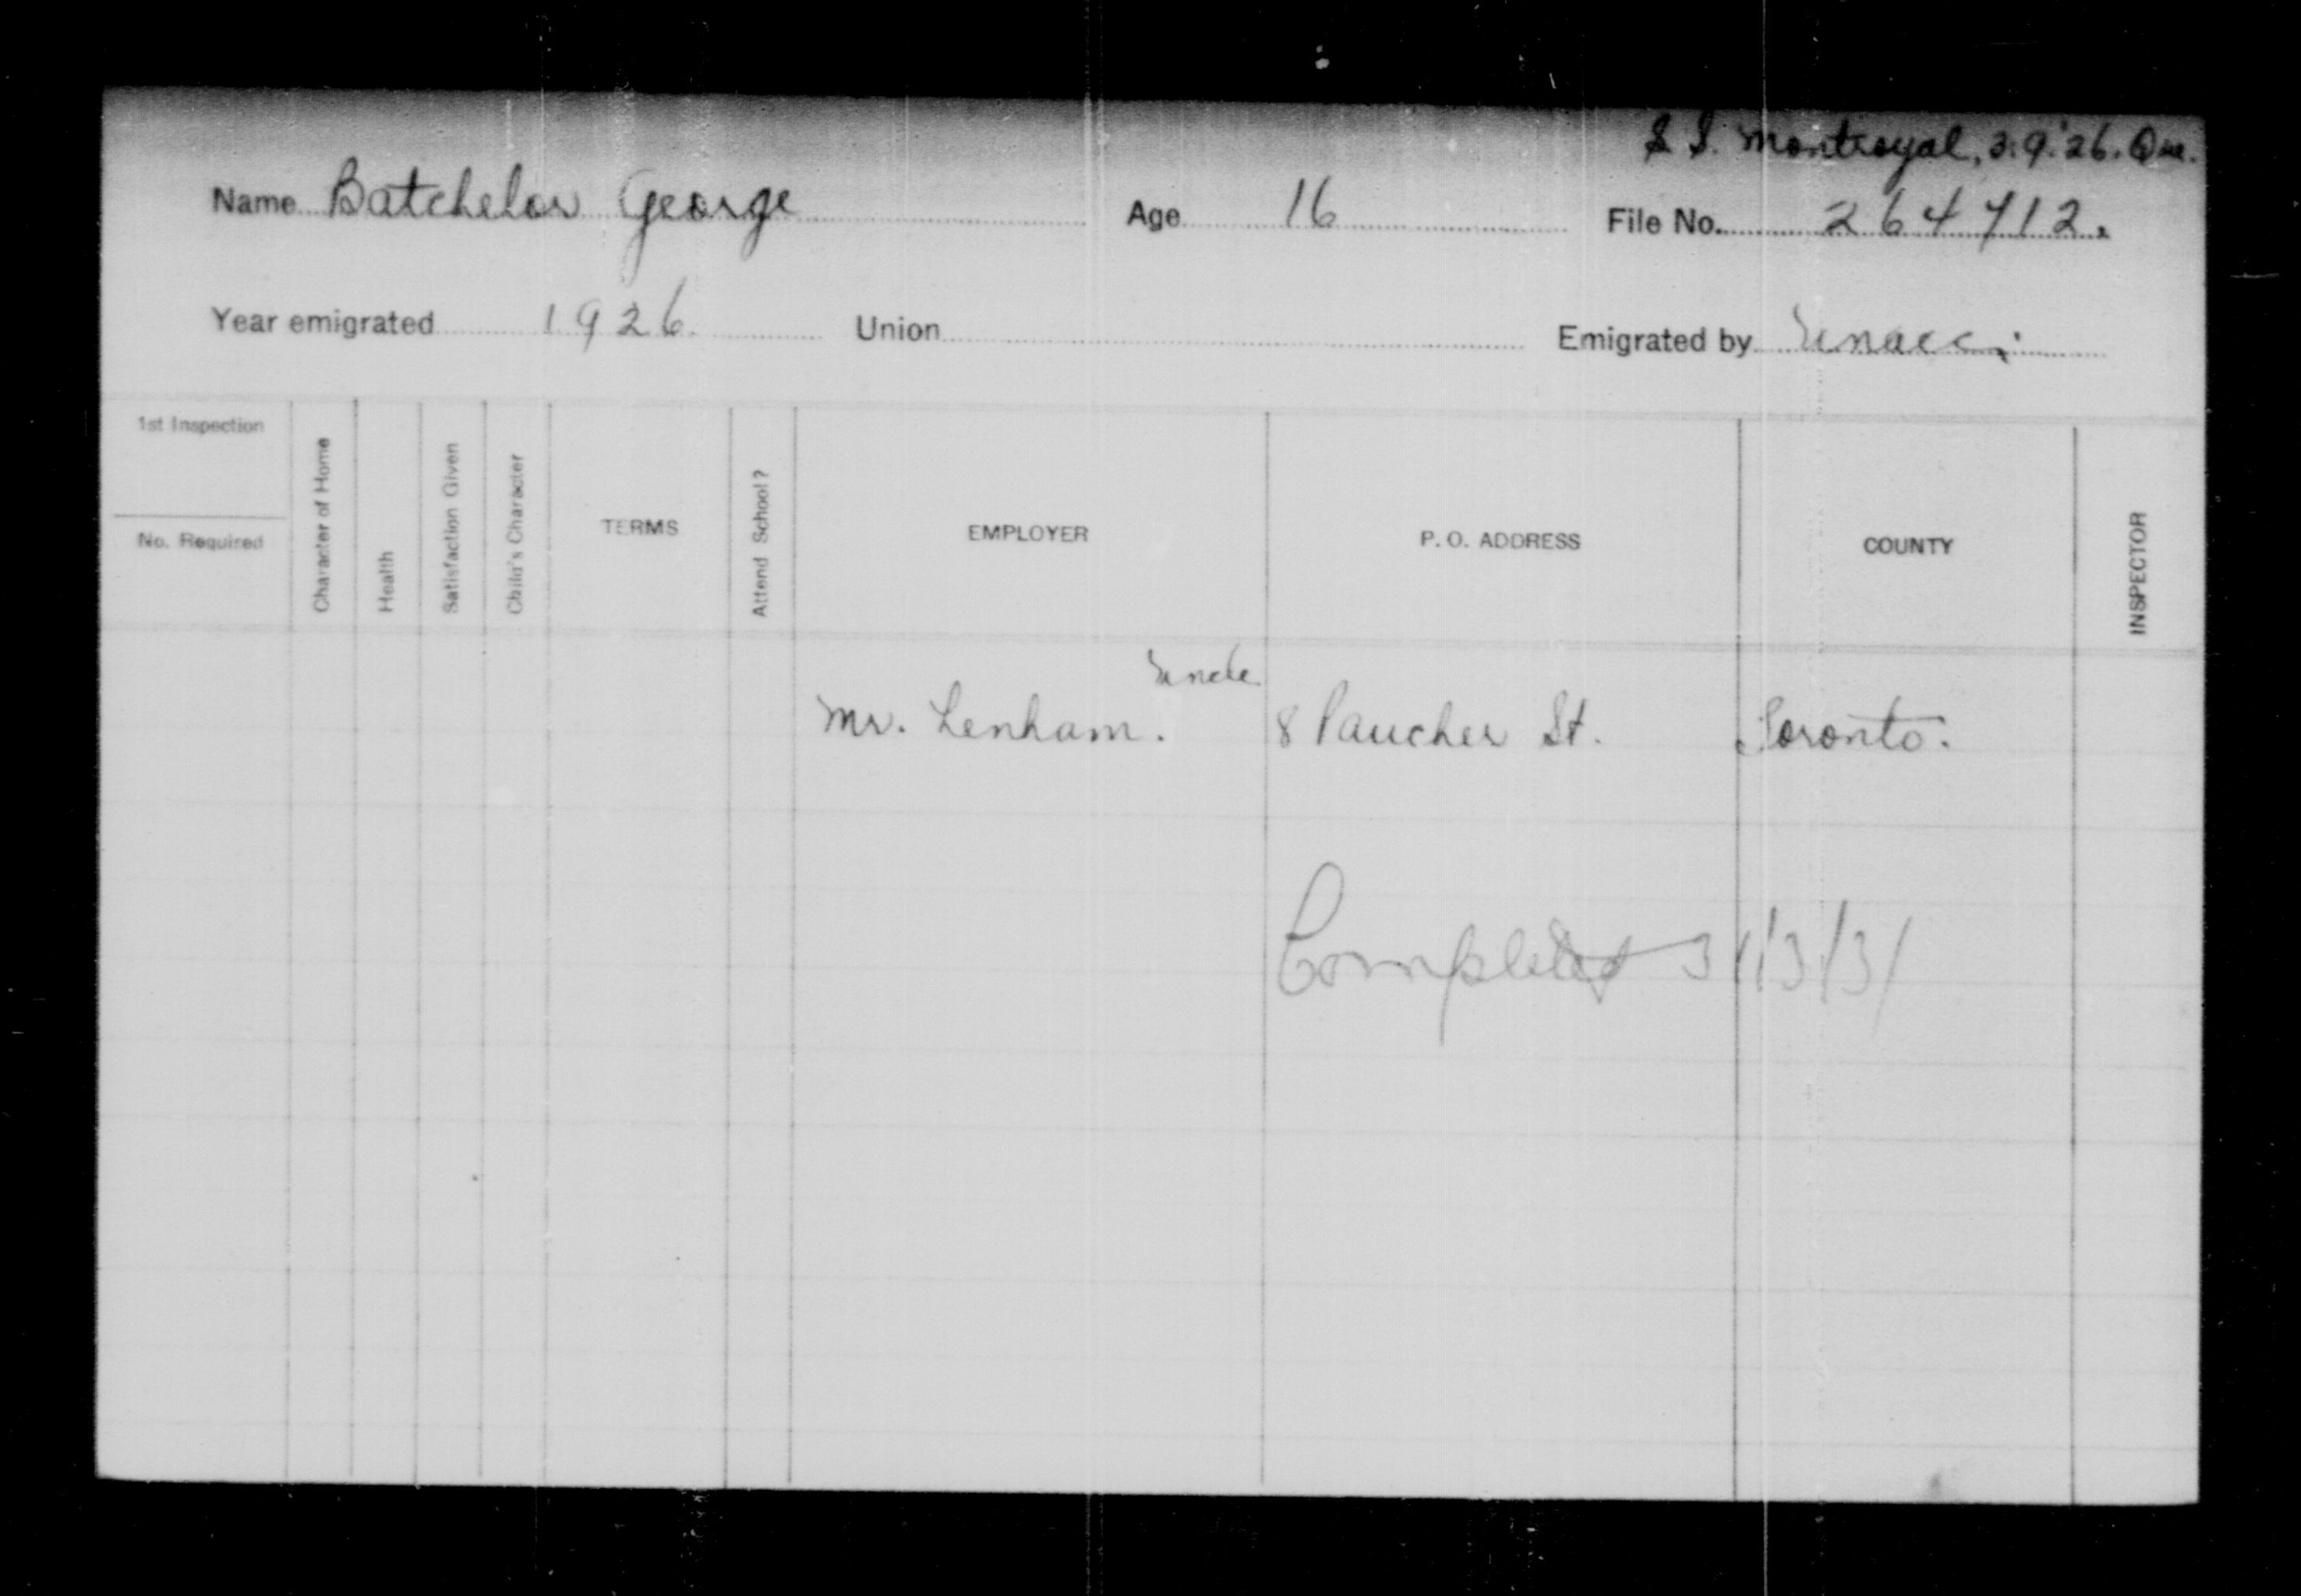 S.S. Montroyal, 3.9.26. Que.
Name Batchelor George Age 16 File No. 264712.
Year emigrated 1926. Union Emigrated by
1st Inspection
No. Required
Character of Home
Health
Satisfaction Given
Child's Character
TERMS
Attend School?
EMPLOYER
P. O. ADDRESS
COUNTY
INSPECTOR
Uncle
Mr. Lenham. 8 Paucher St. Toronto.
Completed 31/3/31